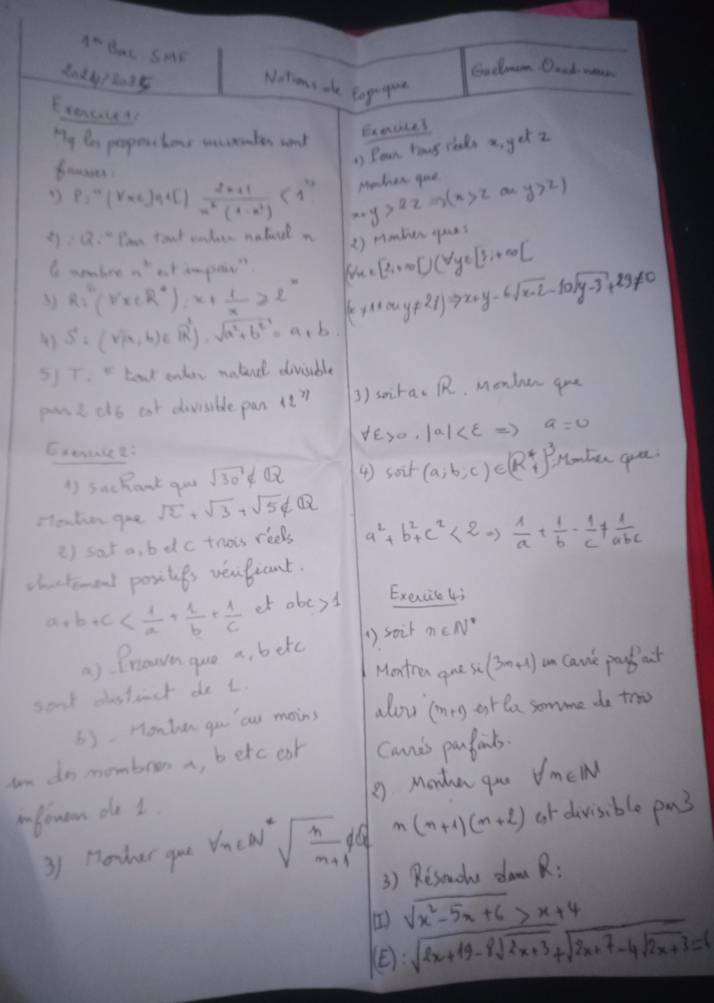 1er Bac SMF
2024/2025
Notions de logique
Exercice 1:
Mq les propositions suivantes sont
fausses:
1) P: "(∀x∈]0,1[) (2x+1)/(x²(1-x²)) < 1"
2) Q: "Pour tout entier naturel n
le nombre n² est impair".
3) R: "(∀x∈R*), x + 1/x ≥ 2"
4) S: (∀(a,b)∈R²), √(a²+b²) = a+b.
5) T: "tout entier naturel divisible
par 2 et 6 est divisible par 12"
Exercice 2:
1) sachant que √30 ∉ Q
Montrer que √2 + √3 + √5 ∉ Q
2) soit a, b et c trois réels
strictement positifs vérifiant.
a+b+c < 1/a + 1/b + 1/c et abc > 1
a) - Prouver que a, b et c
sont distinct de 1.
b) - Montrer qu'au moins
un des nombres a, b et c est
inférieur de 1.
3) Montrer que ∀n∈N* √(n/(n+1)) ∉ Q
Exercice 3
1) Pour tous réels x, y et z
Montrer que
x+y > 2z ⇒ (x > z ou y > z)
2) Montrer que:
(∀x∈[2,+∞[) (∀y∈[3,+∞[
(x≠11 ou y≠28) ⇒ x+y-6√(x-2)-10√(y-3)+29≠0
3) soit a∈R. Montrer que
∀ε>0, |a|<ε ⇒ a=0
4) soit (a;b;c)∈(R*₊)³. Montrer que:
a²+b²+c² < 2 ⇒ 1/a + 1/b - 1/c ≠ 1/abc
Exercice 4:
1) soit n∈N*
Montrer que si (3n+1) un carré parfait
alors (n+1) est la somme de trois
carrés parfaits.
2) Montrer que ∀n∈IN
n(n+1)(n+2) est divisible par 3
3) Résoudre dans R:
(I) √(x²-5x+6) > x+4
(E): √(2x+19-8√(2x+3)) + √(2x+7-4√(2x+3)) = 6